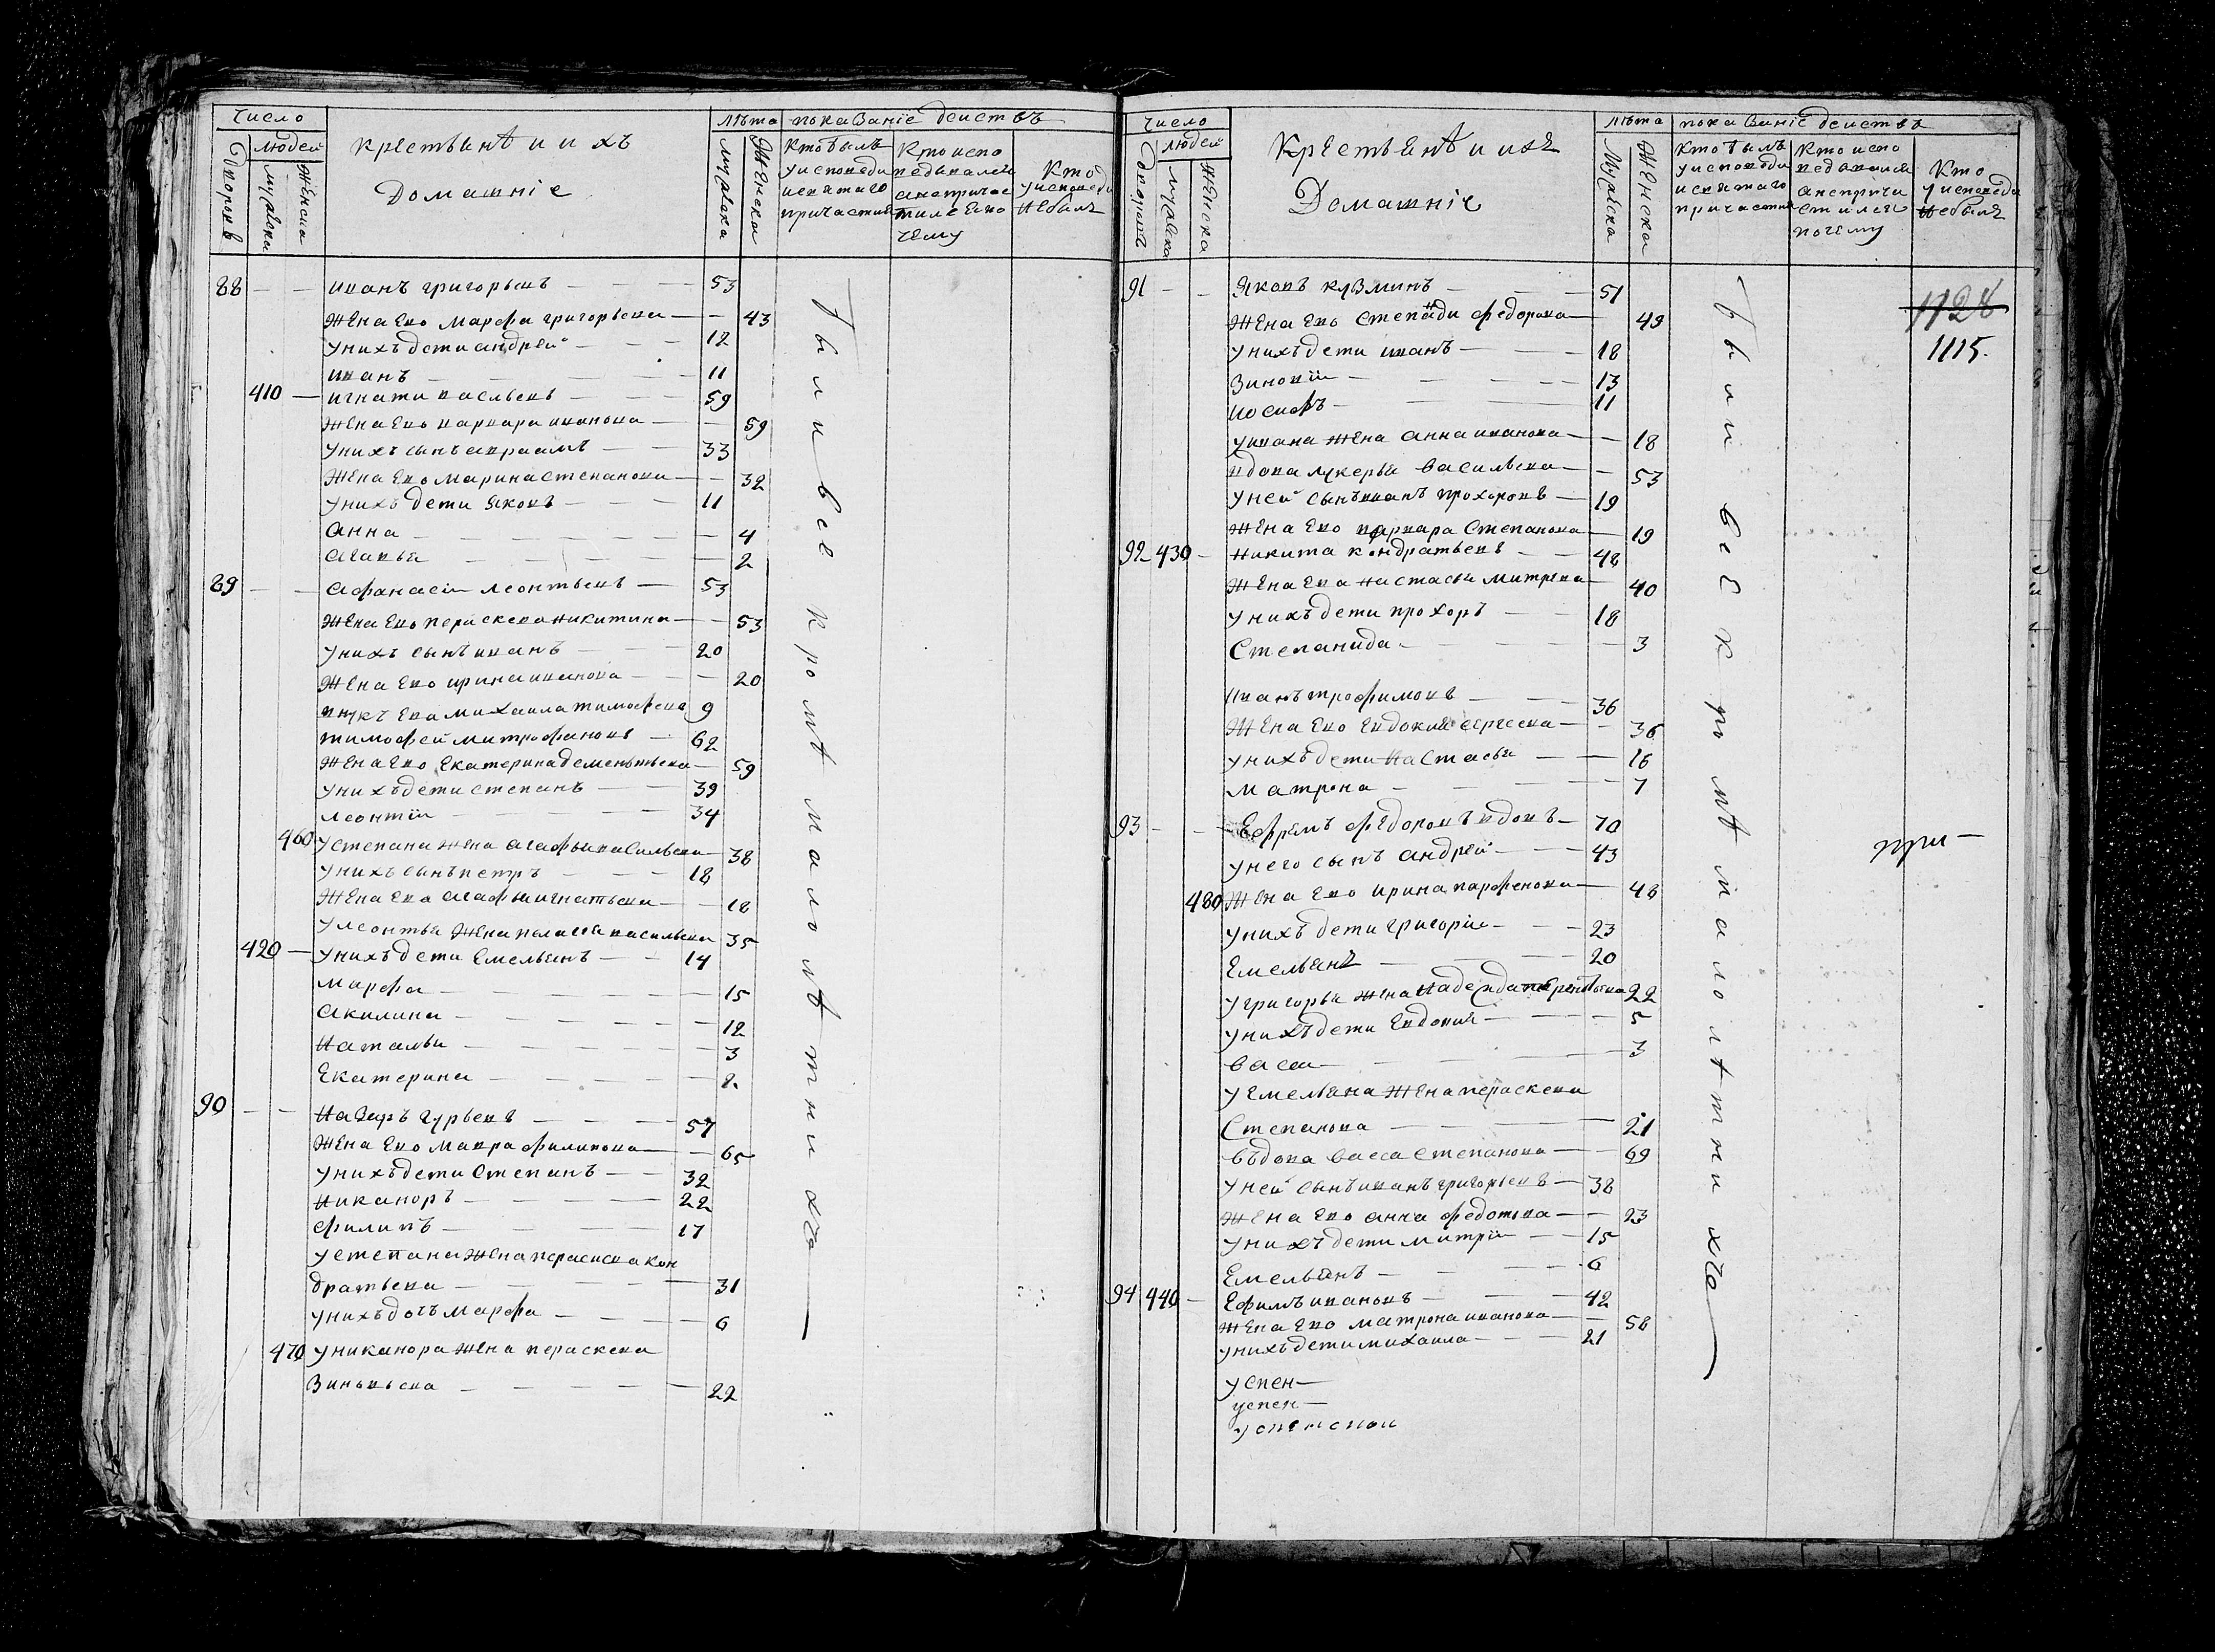 Число
людей
Дворовъ
мужеска
женска
крестьянѣ и ихъ
Домашніе
лѣта
мужеска
женска
показаніе действъ
Кто былъ у исповеди и святаго причастия
Кто исповедывался а не причастился и по чему
Кто у исповеди не былъ
88 — — иванъ григорьевъ — — 53
жена ево марфа григорьева — — 43
у нихъ дети андрей — — 12
иванъ — — 11
410 — игнати васльевъ — — 59
жена ево варвара иванова — — 59
у нихъ сынъ авраамъ — — 33
жена ево марина степанова — — 32
у нихъ дети яковъ — — 11
анна — — 4
агапья — — 2
89 — — афанасіи леонтьевъ — 53
жена ево пераскева никитина — — 53
у нихъ сынъ иванъ — — 20
жена ево ирина иванова — — 20
внукъ ева михаила тимофева 9
тимофей митрофановъ — 62
жена ево екатерина дементьева — 59
у нихъ дети степанъ — — 39
леонтіи — — 34
460 у степана жена агафья васильева — 38
у нихъ сынъ петръ — — 18
жена ева агафья игнатьева — — 18
у леонтья жена пелагея васильева 35
420 — у нихъ дети емельянъ — — 14
марфа — — 15
акилина — — 12
наталья — — 3
екатерина — — 2
90 — — назаръ гурьевъ — — 57
жена ево мавра филипова — — 65
у нихъ дети степанъ — — 32
никаноръ — — 22
филипъ — — 17
у степана жена пераскева кон
дратьева — — 31
у нихъ дочъ марфа — — 6
470 у никанора жена пераскева
зиновьева — — 22
были все кромѣ малолѣтнихъ
Число
людей
Дворовъ
мужеска
женска
Крестьянѣ и ихъ
Домашніе
лѣта
мужеска
женска
показаніе действъ
Кто былъ у исповеди и святаго причастия
Кто исповедывался а не причастился и почему
Кто у исповеди не былъ
91 — — яковъ кузминъ — — 51
жена ево степанди федорова — 49
у нихъ дети иванъ — — 18
зиновіи — — 13
иосифъ — — 11
у ивана жена анна иванова — — 18
вдова лукерья васильева — — 53
у ней сынъ иванъ прохоровъ — 19
жена ево варвара степанова — 19
92 430 — никита кондратьевъ — — 48
жена ева настасья митрева — 40
у нихъ дети прохоръ — — 18
степанида — — 3
иванъ трофимовъ — — 36
жена ево евдокия сергеева — — 36
у нихъ дети настасья — — 16
матрона — — 7
93 — — ефремъ федоровъ вдовъ — 70
у него сынъ андрей — — 43
480 жена ево ирина парфенова — 48
у нихъ дети григоріи — — 23
емельянъ — — 20
у григорья жена надежда терентьева 22
у нихъ дети евдокия — — 5
васа — — 3
у емельяна жена пераскева
степанова — — 21
въдова васса степанова — — 69
у ней сынъ иванъ григорьевъ — 38
жена ево анна федотова — — 23
у нихъ дети митріи — — 15
емельянъ — — 6
94 440 — ефимъ ивановъ — — 42
жена ево матрона иванова — — 58
у нихъ дети михаила — — 21
успен —
успен —
успенскои
были все кромѣ малолѣтнихъ
1128
1115.
при —